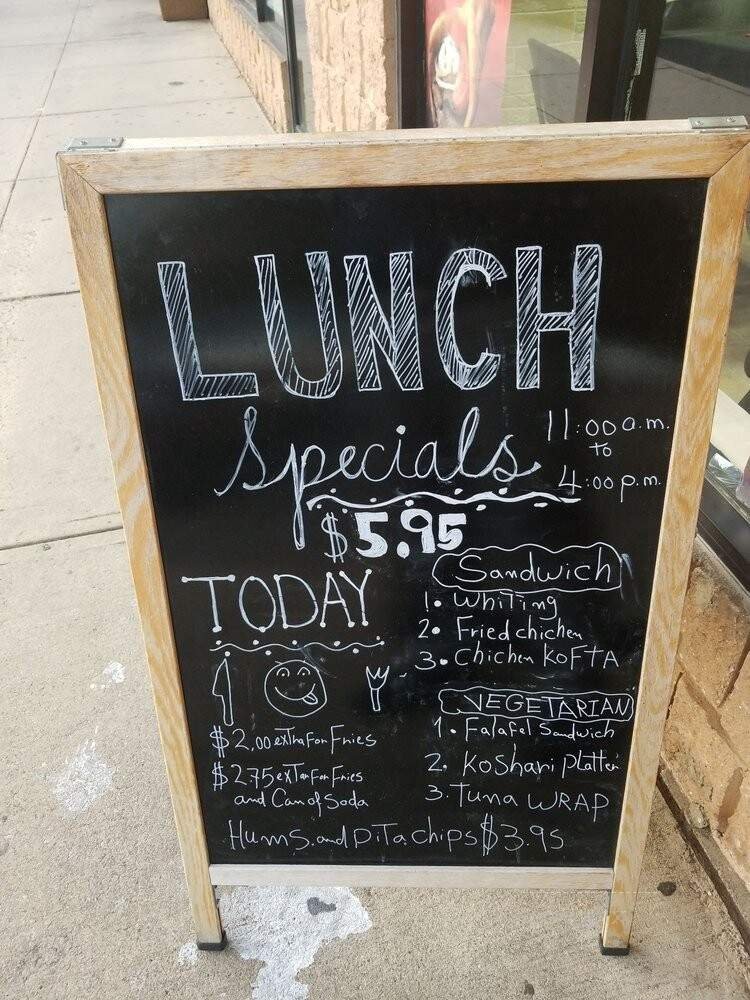 LUNCH
Specials
11:00 a.m.
to
4:00 p.m.
$5.95
TODAY
$2.00 extra For Fries
$2.75 exTar For Fries
and Can of Soda
Sandwich
1. Whiting
2. Fried chichen
3. Chichen KOFTA
VEGETARIAN
1. Falafal Sandwich
2. Koshari Platter
3. Tuna WRAP
Hums. and PiTa chips $3.95